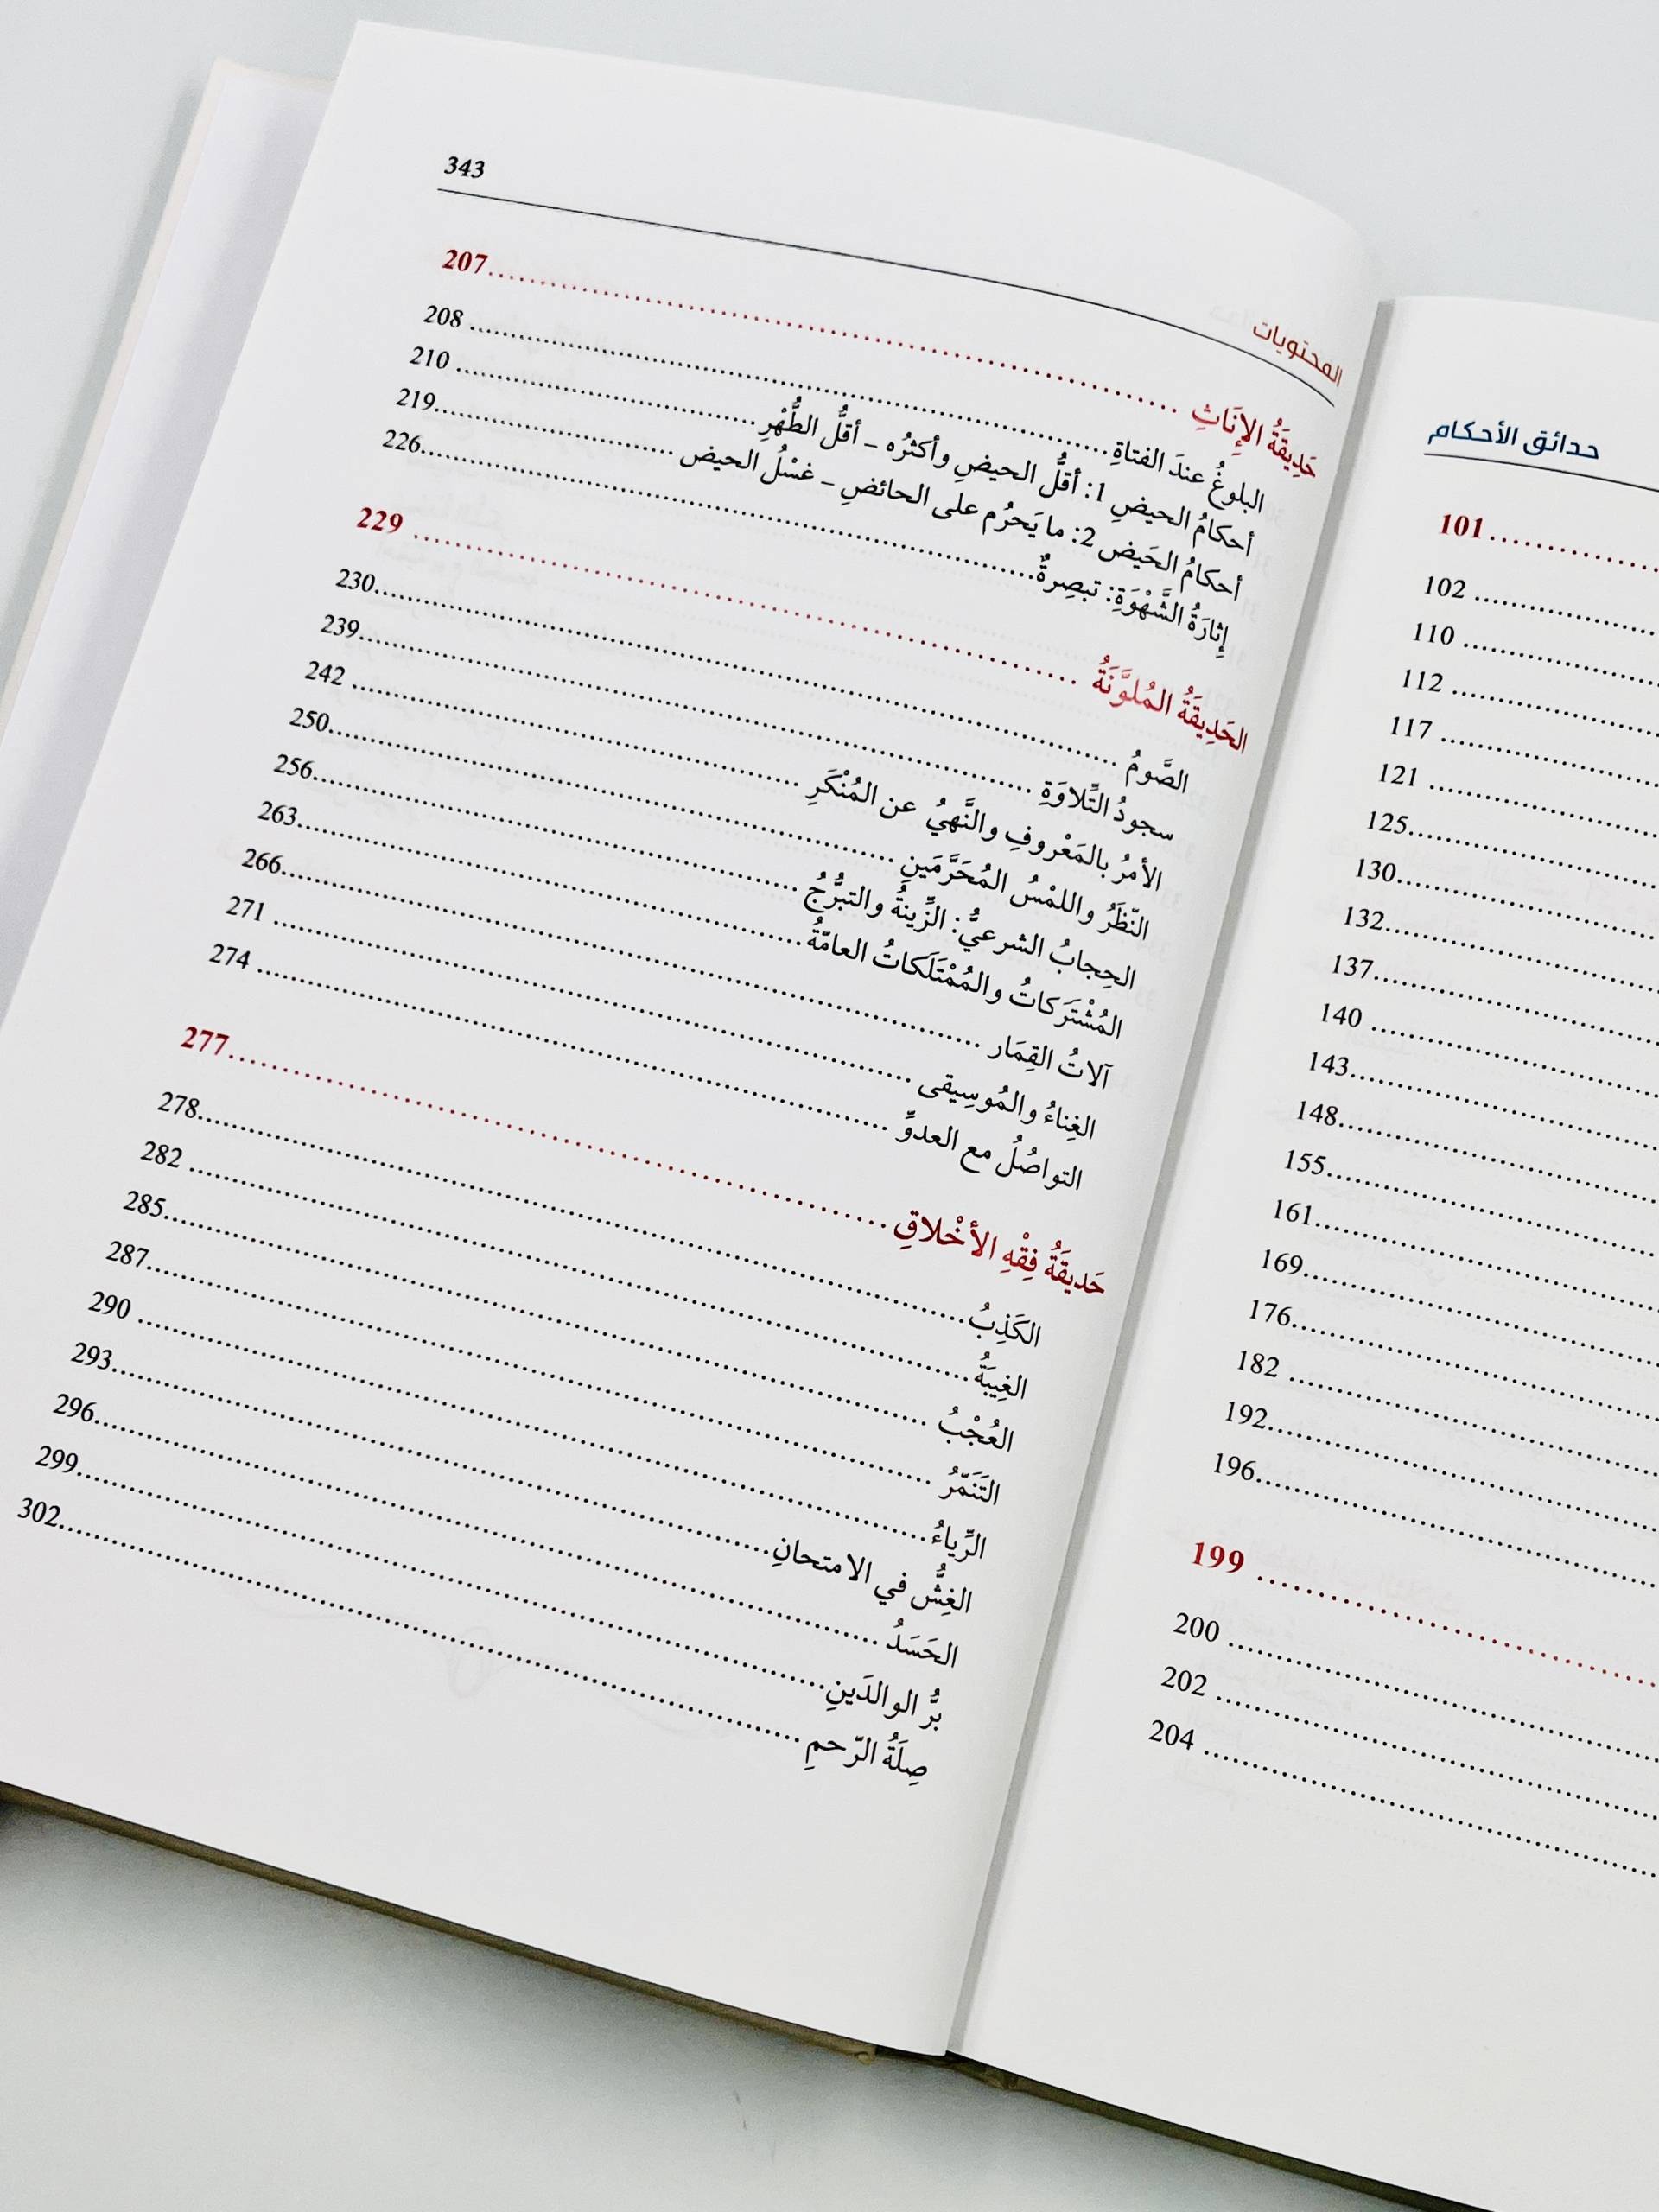 حدائق الأحكام
101
102
110
112
117
121
125
130
132
137
140
143
148
155
161
169
176
182
192
196
199
200
202
204
المحتويات 343
حَدِيقَةُ الإِنَاثِ 207
البلوغُ عندَ الفتاةِ 208
أحكامُ الحيضِ 1: أقلُّ الحيضِ وأكثرُه – أقلُّ الطُّهْرِ 210
أحكامُ الحَيض 2: ما يَحرُم على الحائضِ – غسْلُ الحيض 219
إثارَةُ الشَّهْوَةِ: تبصِرةٌ 226
الحَدِيقَةُ المُلوَّنَةُ 229
الصَّومُ 230
سجودُ التِّلاوَةِ 239
الأمرُ بالمَعْروفِ والنَّهيُ عن المُنْكَرِ 242
النّظَرُ واللمْسُ المُحَرَّمَينِ 250
الحِجابُ الشرعيُّ: الزِّينةُ والتبرُّجُ 256
المُشْتَركاتُ والمُمْتَلَكاتُ العامّةُ 263
آلاتُ القِمَار 266
الغِناءُ والمُوسِيقى 271
التواصُلُ مع العدوِّ 274
حَديقَةُ فِقْهِ الأخْلاقِ 277
الكَذِبُ 278
الغِيبَةُ 282
العُجْبُ 285
التَنَمّرُ 287
الرِّياءُ 290
الغِشُّ في الامتحانِ 293
الحَسَدُ 296
برُّ الوالدَينِ 299
صِلَةُ الرّحمِ 302